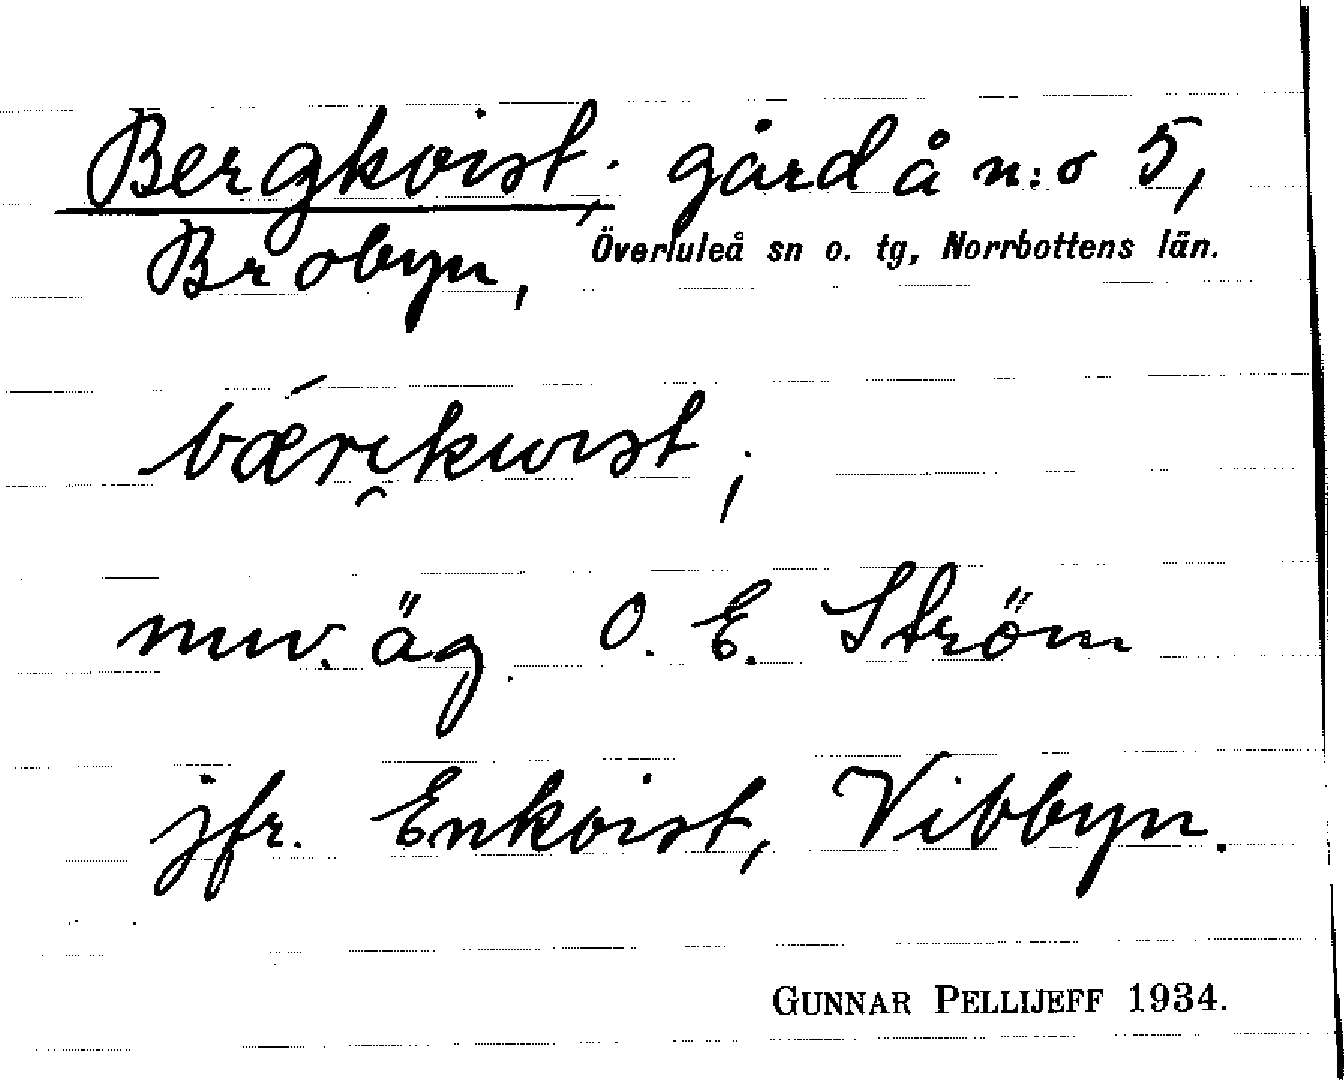 Bergkvist, gård å n:o 5,
Brobyn, Överluleå sn o. tg, Norrbottens län.
bǽri̯kwist,
nuv. äg. O. E. Ström
jfr. Enkvist, Vibbyn.
GUNNAR PELLIJEFF 1934.